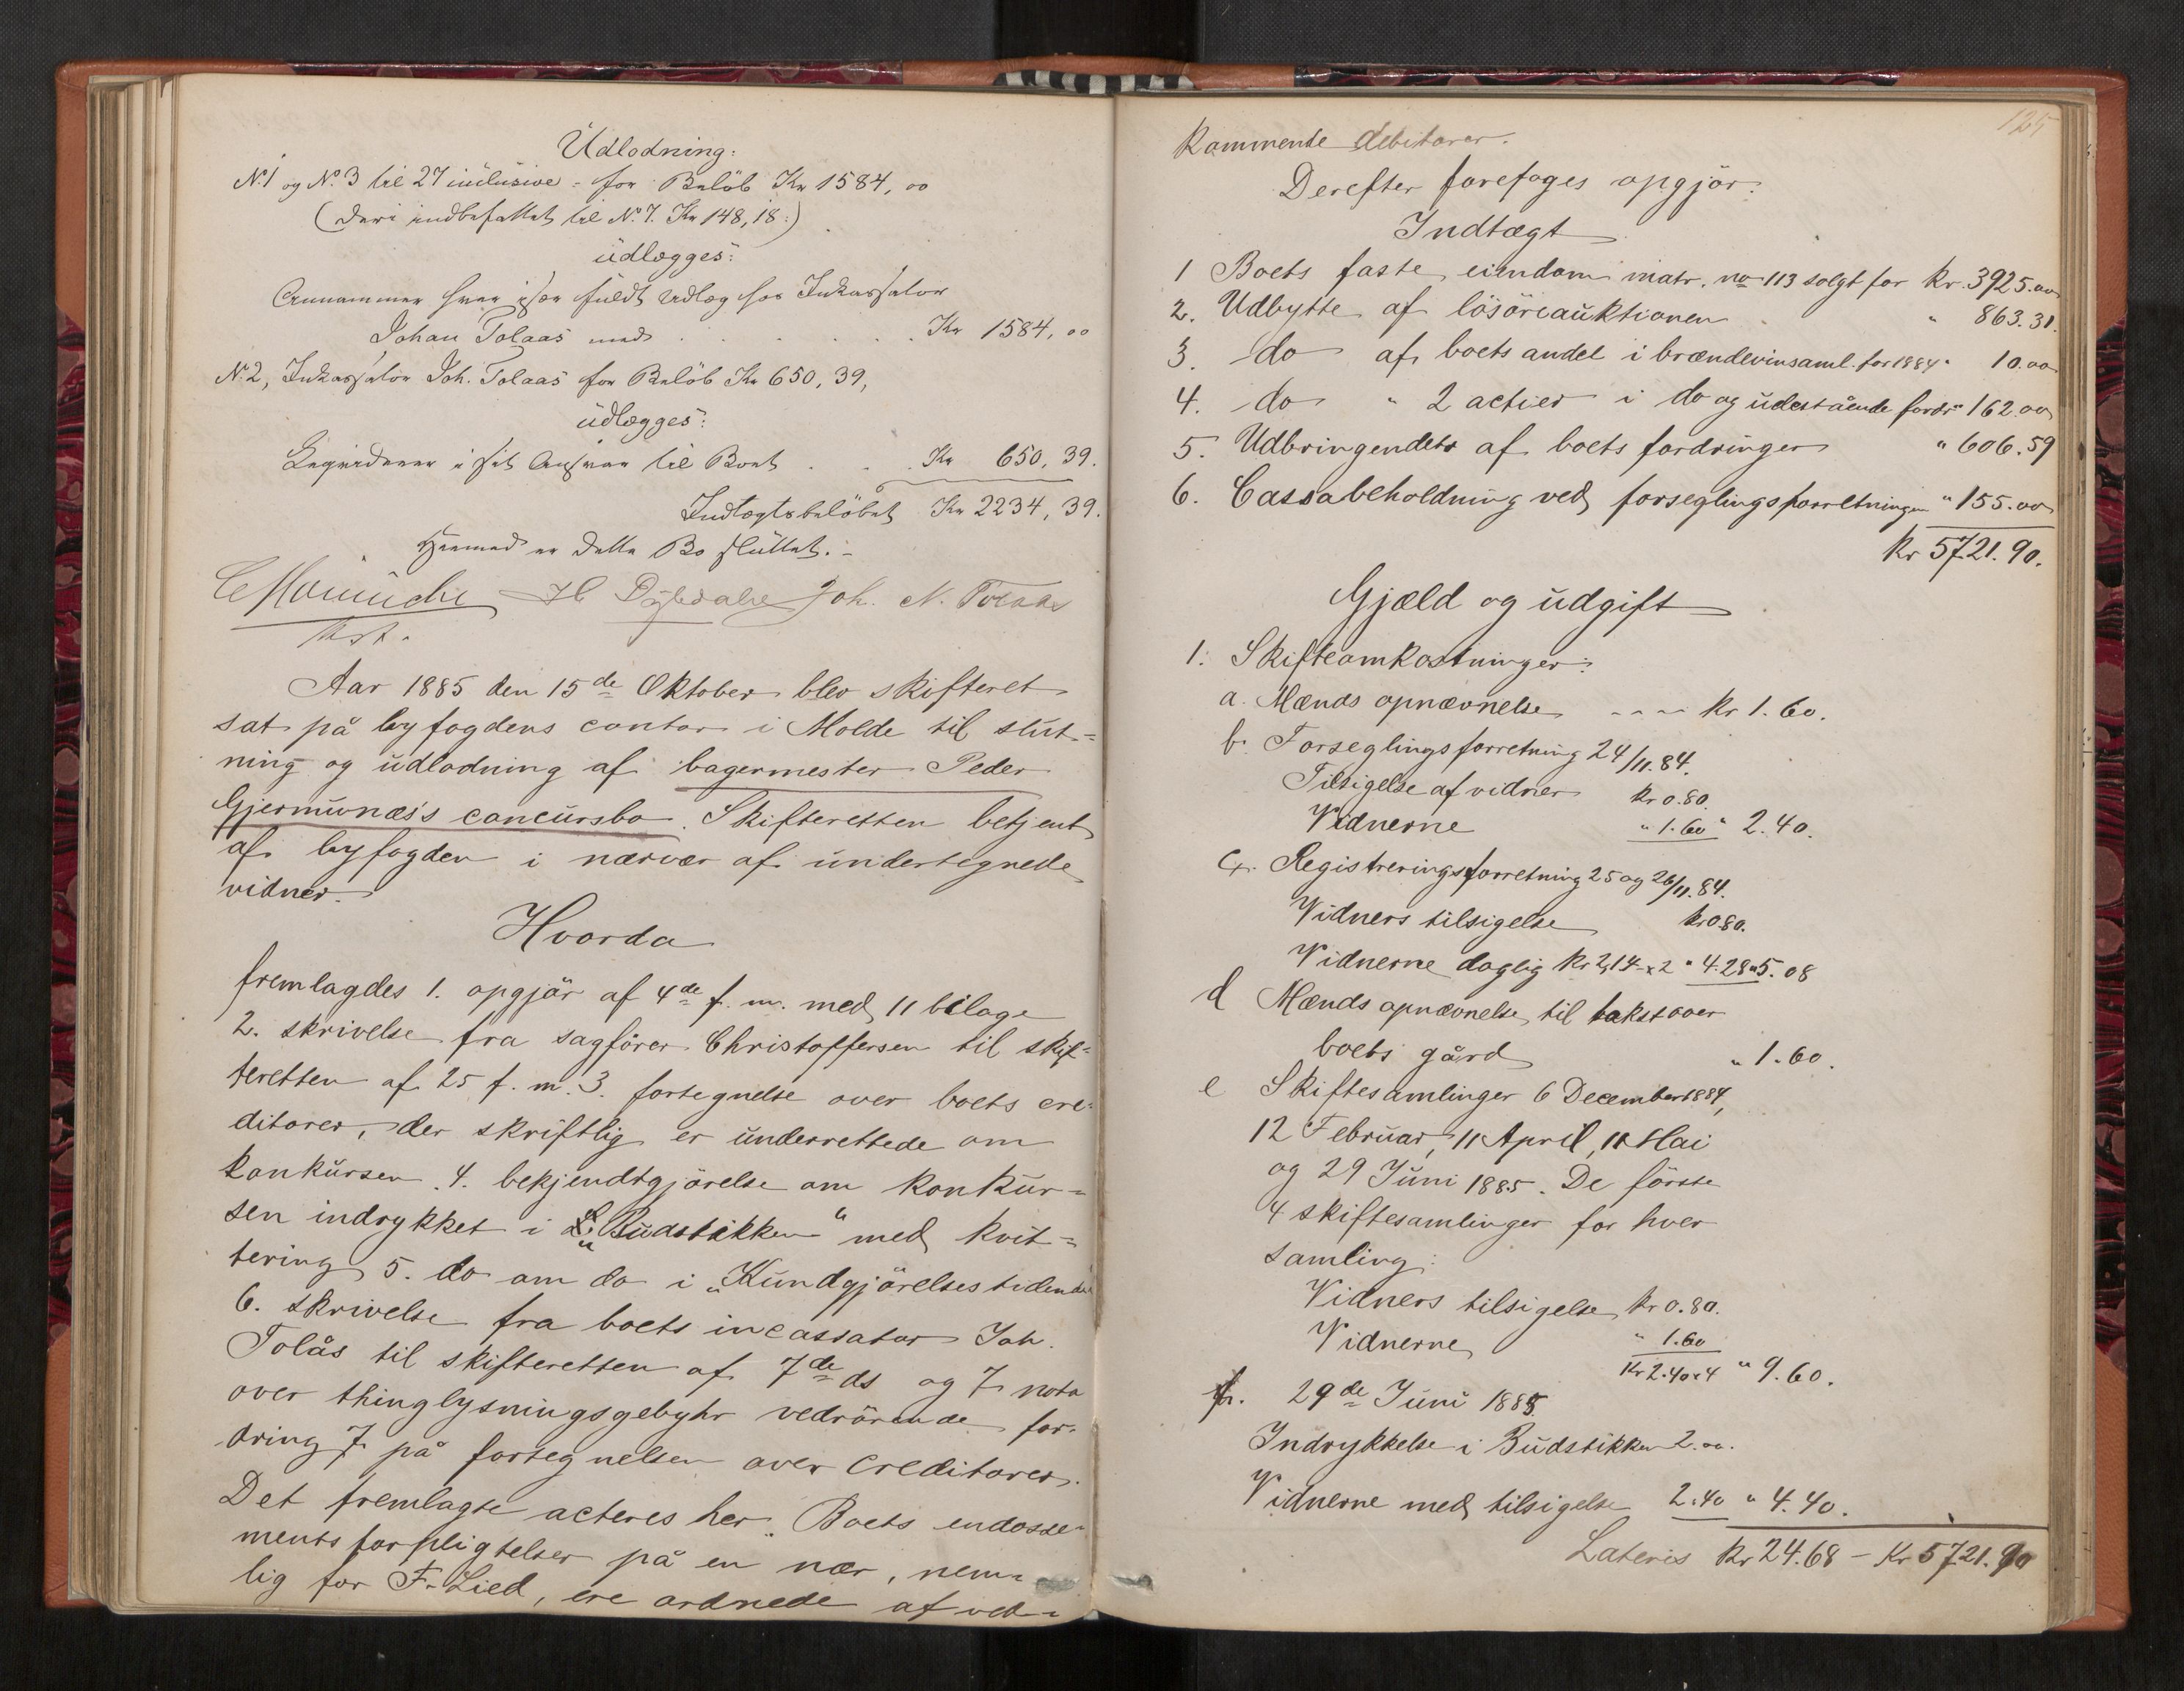 Udlodning:
No. 1 og No. 3 til 27 inclusive - for Beløb Kr 1584,00
(deri indbefattet til No. 7. Kr 148,18:)
udlægges:
Annammer hver især fuldt Udlæg hos Inkassator
Johan Tolaas med . . . . . . Kr 1584,00
No. 2, Inkassator Joh. Tolaas for Beløb Kr 650,39,
udlægges:
Liqviderer i sit Ansvar til Boet . . . Kr 650,39.
Indtægtsbeløbet Kr 2234,39.
Hermed er dette Bo sluttet.-
Joh. N. Tolaas
Aar 1885 den 15de Oktober blev skifteret
sat på byfogdens contor i Molde til slut=
ning og udlodning af bagermester Peder
Gjermunæs's concursbo. Skifteretten betjent
af byfogden i nærvær af undertegnede
vidner.
Hvorda
fremlagdes 1. opgjør af 4de f. m. med 11 bilage
2. skrivelse fra sagfører Christoffersen til skif=
teretten af 25 f. m. 3. fortegnelse over boets cre=
ditorer, der skriftlig er underrettede om
konkursen. 4. bekjendtgjørelse om konkur=
sen indrykket i „Budstikken“ med kvit=
tering 5. do om do i „Kundgjørelsestidende“
6. skrivelse fra boets incassator Joh.
Tolås til skifteretten af 7de ds og 7. nota
over thinglysningsgebyhr vedrørende for=
dring 7 på fortegnelsen over creditorer.
Det fremlagte acteres her. Boets endosse=
mentsforpligtelser på en nær, nem=
lig for F. Lied, ere ordnede af ved=
125
kommende debitorer.
Derefter foretoges opgjør:
Indtægt
1 Boets faste eiendom matr. no 113 solgt for kr. 3925.00
2. Udbytte af løsøreauktionen " 863.31.
3. do af boets andel i brændevinsaml. for 1884 " 10.00
4. do " 2 actier i do og udestående fordr " 162.00
5. Udbringendets af boets fordringer " 606.59
6. Cassabeholdning ved forseglingsforretningen " 155.00
Kr 5721.90.
Gjæld og udgift
1. Skifteomkostninger:
a. Mænds opnævnelse - - - - kr 1.60.
b. Forseglingsforretning 24/11.84.
Tilsigelse af vidner kr 0.80.
Vidnerne " 1.60 " 2.40.
c. Registreringsforretning 25 og 26/11.84.
Vidners tilsigelse kr 0.80.
Vidnerne daglig kr 2,14 x 2 " 4.28 " 5.08
d Mænds opnævnelse til takst over
boets gård " 1.60.
e Skiftesamlinger 6 December 1884,
12 Februar, 11 April, 11 Mai
og 29 Juni 1885. De første
4 skiftesamlinger for hver
samling:
Vidners tilsigelse kr 0.80.
Vidnerne " 1.60
Kr 2.40 x 4 " 9.60.
f. 29de Juni 1885.
Indrykkelse i Budstikken 2.00.
Vidnerne med tilsigelse 2.40 " 4.40.
Lateris kr 24.68 - Kr 5721.90